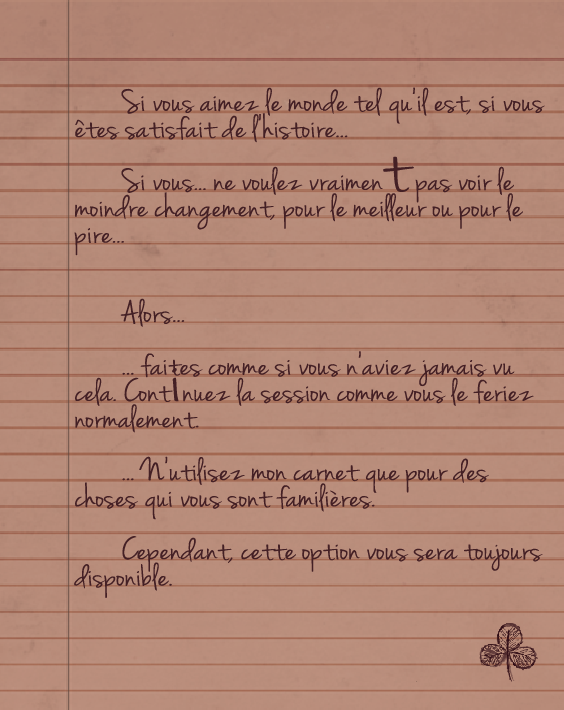 Si vous aimez le monde tel qu'il est, si vous
êtes satisfait de l'histoire...
Si vous... ne voulez vraiment pas voir le
moindre changement, pour le meilleur ou pour le
pire...
Alors...
... faites comme si vous n'aviez jamais vu
cela. ContInuez la session comme vous le feriez
normalement.
... N'utilisez mon carnet que pour des
choses qui vous sont familières.
Cependant, cette option vous sera toujours
disponible.